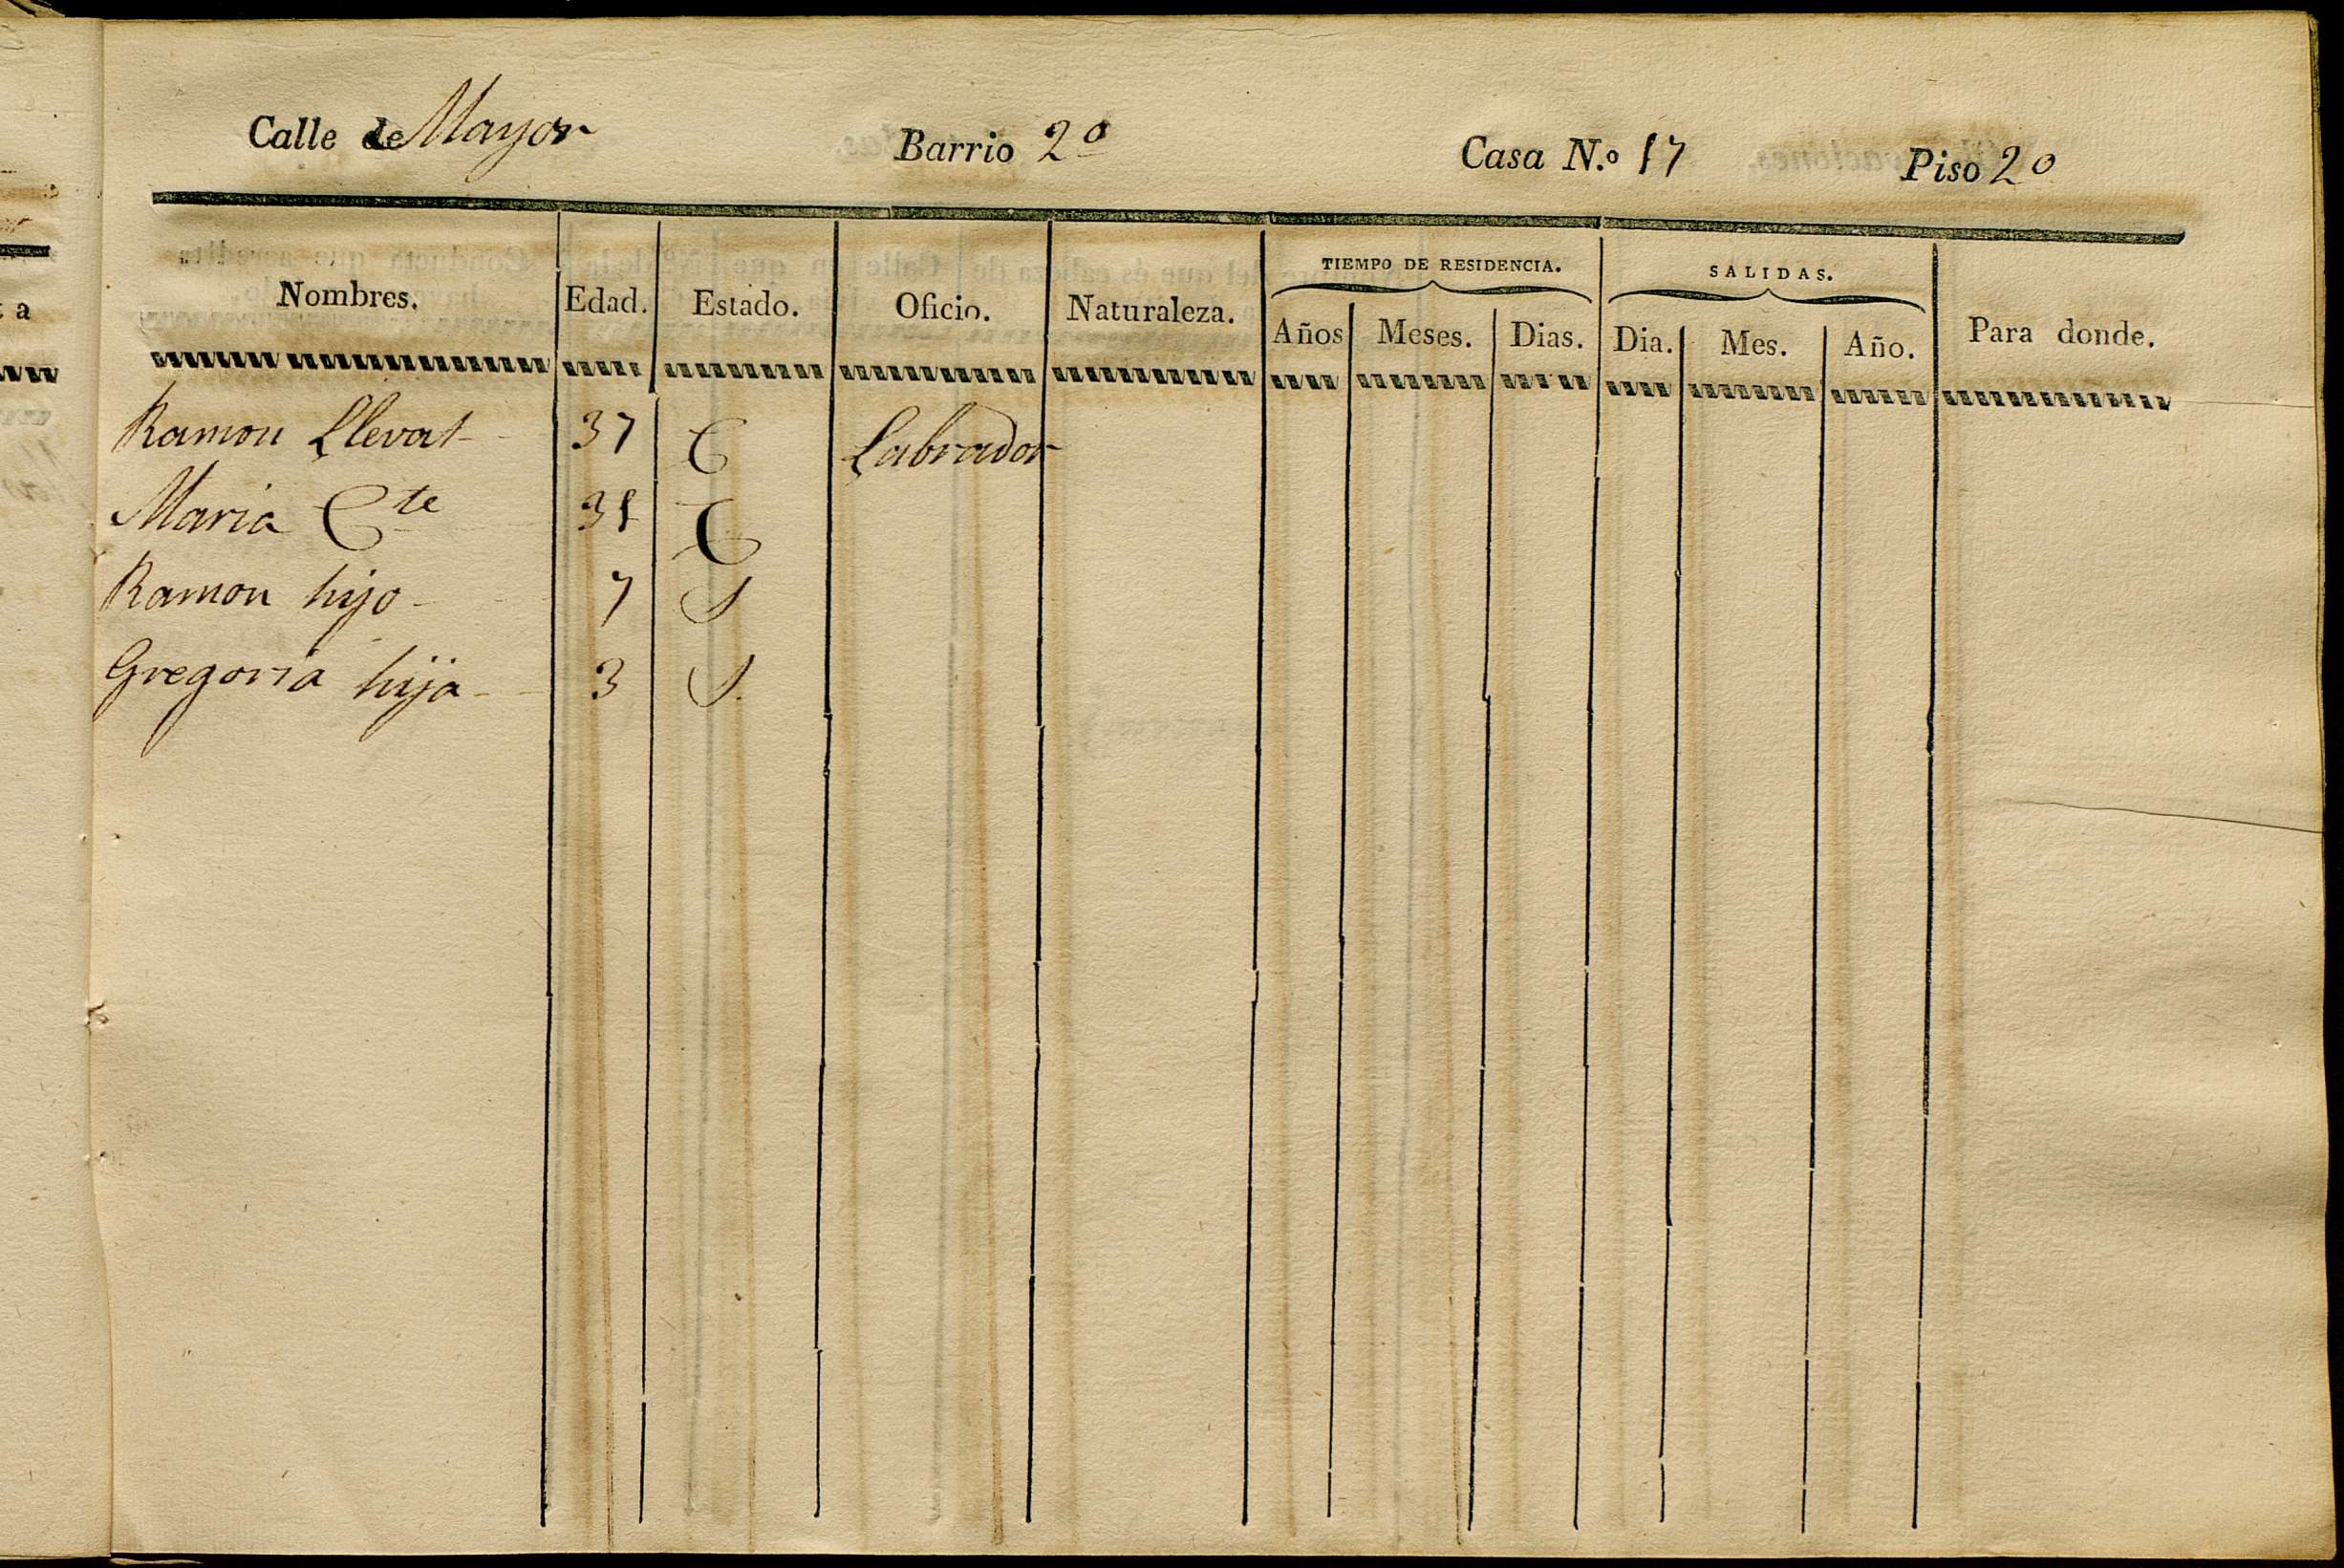 Calle de Mayor Barrio 2º Casa N.º 17 Piso 2º
Nombres. Edad. Estado. Oficio. Naturaleza. TIEMPO DE RESIDENCIA. SALIDAS. Para donde.
Años Meses. Dias. Dia. Mes. Año.
Ramon Llevat 37 C Labrador
Maria Cte 31 C
Ramon hijo 7 S
Gregoria hija 3 S.